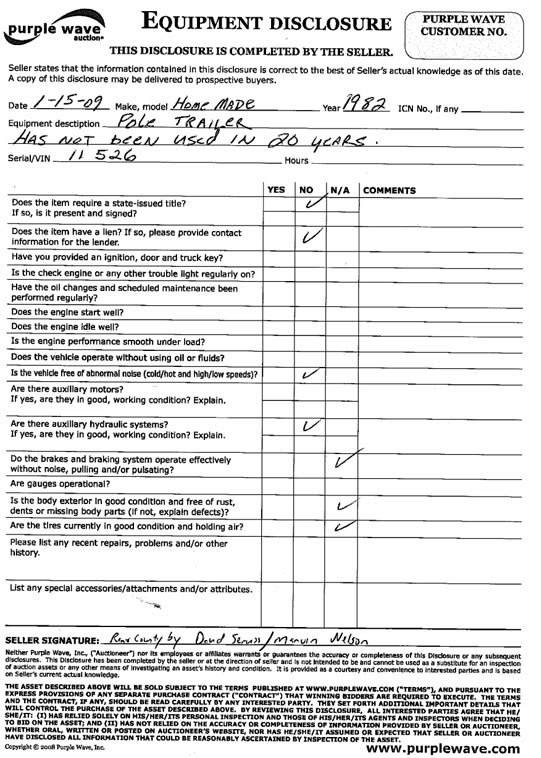 purple wave
auction®
EQUIPMENT DISCLOSURE
PURPLE WAVE
CUSTOMER NO.
THIS DISCLOSURE IS COMPLETED BY THE SELLER.
Seller states that the information contained in this disclosure is correct to the best of Seller's actual knowledge as of this date.
A copy of this disclosure may be delivered to prospective buyers.
Date 1-15-09 Make, model Home MADE Year 1982 ICN No., If any
Equipment desctiption Pole TRAILER
HAS NOT been used IN 20 years.
Serial/VIN 11 526 Hours
YES NO N/A COMMENTS
Does the item require a state-issued title?
If so, is it present and signed?
Does the item have a lien? If so, please provide contact
information for the lender.
Have you provided an ignition, door and truck key?
Is the check engine or any other trouble light regularly on?
Have the oil changes and scheduled maintenance been
performed regularly?
Does the engine start well?
Does the engine idle well?
Is the engine performance smooth under load?
Does the vehicle operate without using oil or fluids?
Is the vehicle free of abnormal noise (cold/hot and high/low speeds)?
Are there auxiliary motors?
If yes, are they in good, working condition? Explain.
Are there auxiliary hydraulic systems?
If yes, are they in good, working condition? Explain.
Do the brakes and braking system operate effectively
without noise, pulling and/or pulsating?
Are gauges operational?
Is the body exterior in good condition and free of rust,
dents or missing body parts (if not, explain defects)?
Are the tires currently in good condition and holding air?
Please list any recent repairs, problems and/or other
history.
List any special accessories/attachments and/or attributes.
SELLER SIGNATURE: County by David / Marvin Nelson
Neither Purple Wave, Inc., ("Auctioneer") nor its employees or affiliates warrants or guarantees the accuracy or completeness of this Disclosure or any subsequent
disclosures. This Disclosure has been completed by the seller or at the direction of seller and is not intended to be and cannot be used as a substitute for an inspection
of auction assets or any other means of investigating an asset's history and condition. It is provided as a courtesy and convenience to interested parties and is based
on Seller's current actual knowledge.
THE ASSET DESCRIBED ABOVE WILL BE SOLD SUBJECT TO THE TERMS PUBLISHED AT WWW.PURPLEWAVE.COM ("TERMS"), AND PURSUANT TO THE
EXPRESS PROVISIONS OF ANY SEPARATE PURCHASE CONTRACT ("CONTRACT") THAT WINNING BIDDERS ARE REQUIRED TO EXECUTE. THE TERMS
AND THE CONTRACT, IF ANY, SHOULD BE READ CAREFULLY BY ANY INTERESTED PARTY. THEY SET FORTH ADDITIONAL IMPORTANT DETAILS THAT
WILL CONTROL THE PURCHASE OF THE ASSET DESCRIBED ABOVE. BY REVIEWING THIS DISCLOSURE, ALL INTERESTED PARTIES AGREE THAT HE/
SHE/IT: (I) HAS RELIED SOLELY ON HIS/HER/ITS PERSONAL INSPECTION AND THOSE OF HIS/HER/ITS AGENTS AND INSPECTORS WHEN DECIDING
TO BID ON THE ASSET; AND (II) HAS NOT RELIED ON THE ACCURACY OR COMPLETENESS OF INFORMATION PROVIDED BY SELLER OR AUCTIONEER,
WHETHER ORAL, WRITTEN OR POSTED ON AUCTIONEER'S WEBSITE, NOR HAS HE/SHE/IT ASSUMED OR EXPECTED THAT SELLER OR AUCTIONEER
HAVE DISCLOSED ALL INFORMATION THAT COULD BE REASONABLY ASCERTAINED BY INSPECTION OF THE ASSET.
Copyright © 2008 Purple Wave, Inc.
www.purplewave.com